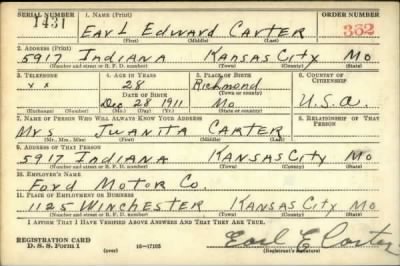 SERIAL NUMBER 1. NAME (Print) ORDER NUMBER
1431 Earl Edward Carter 362
(First) (Middle) (Last)
2. ADDRESS (Print)
5917 Indiana Kansas City Mo
(Number and street or R. F. D. number) (Town) (County) (State)
3. TELEPHONE 4. AGE IN YEARS 5. PLACE OF BIRTH 6. COUNTRY OF CITIZENSHIP
x x 28 Richmond
DATE OF BIRTH (Town or county)
Dec 28 1911 Mo U.S.A.
(Exchange) (Number) (Mo.) (Day) (Yr.) (State or country)
7. NAME OF PERSON WHO WILL ALWAYS KNOW YOUR ADDRESS 8. RELATIONSHIP OF THAT PERSON
Mrs Juanita Carter
(Mr., Mrs., Miss) (First) (Middle) (Last)
9. ADDRESS OF THAT PERSON
5917 Indiana Kansas City Mo
(Number and street or R. F. D. number) (Town) (County) (State)
10. EMPLOYER'S NAME
Ford Motor Co.
11. PLACE OF EMPLOYMENT OR BUSINESS
1125 Winchester Kansas City Mo
(Number and street or R. F. D. number) (Town) (County) (State)
I AFFIRM THAT I HAVE VERIFIED ABOVE ANSWERS AND THAT THEY ARE TRUE.
REGISTRATION CARD Earl E Carter
D. S. S. Form 1 (over) 16—17105 (Registrant's signature)